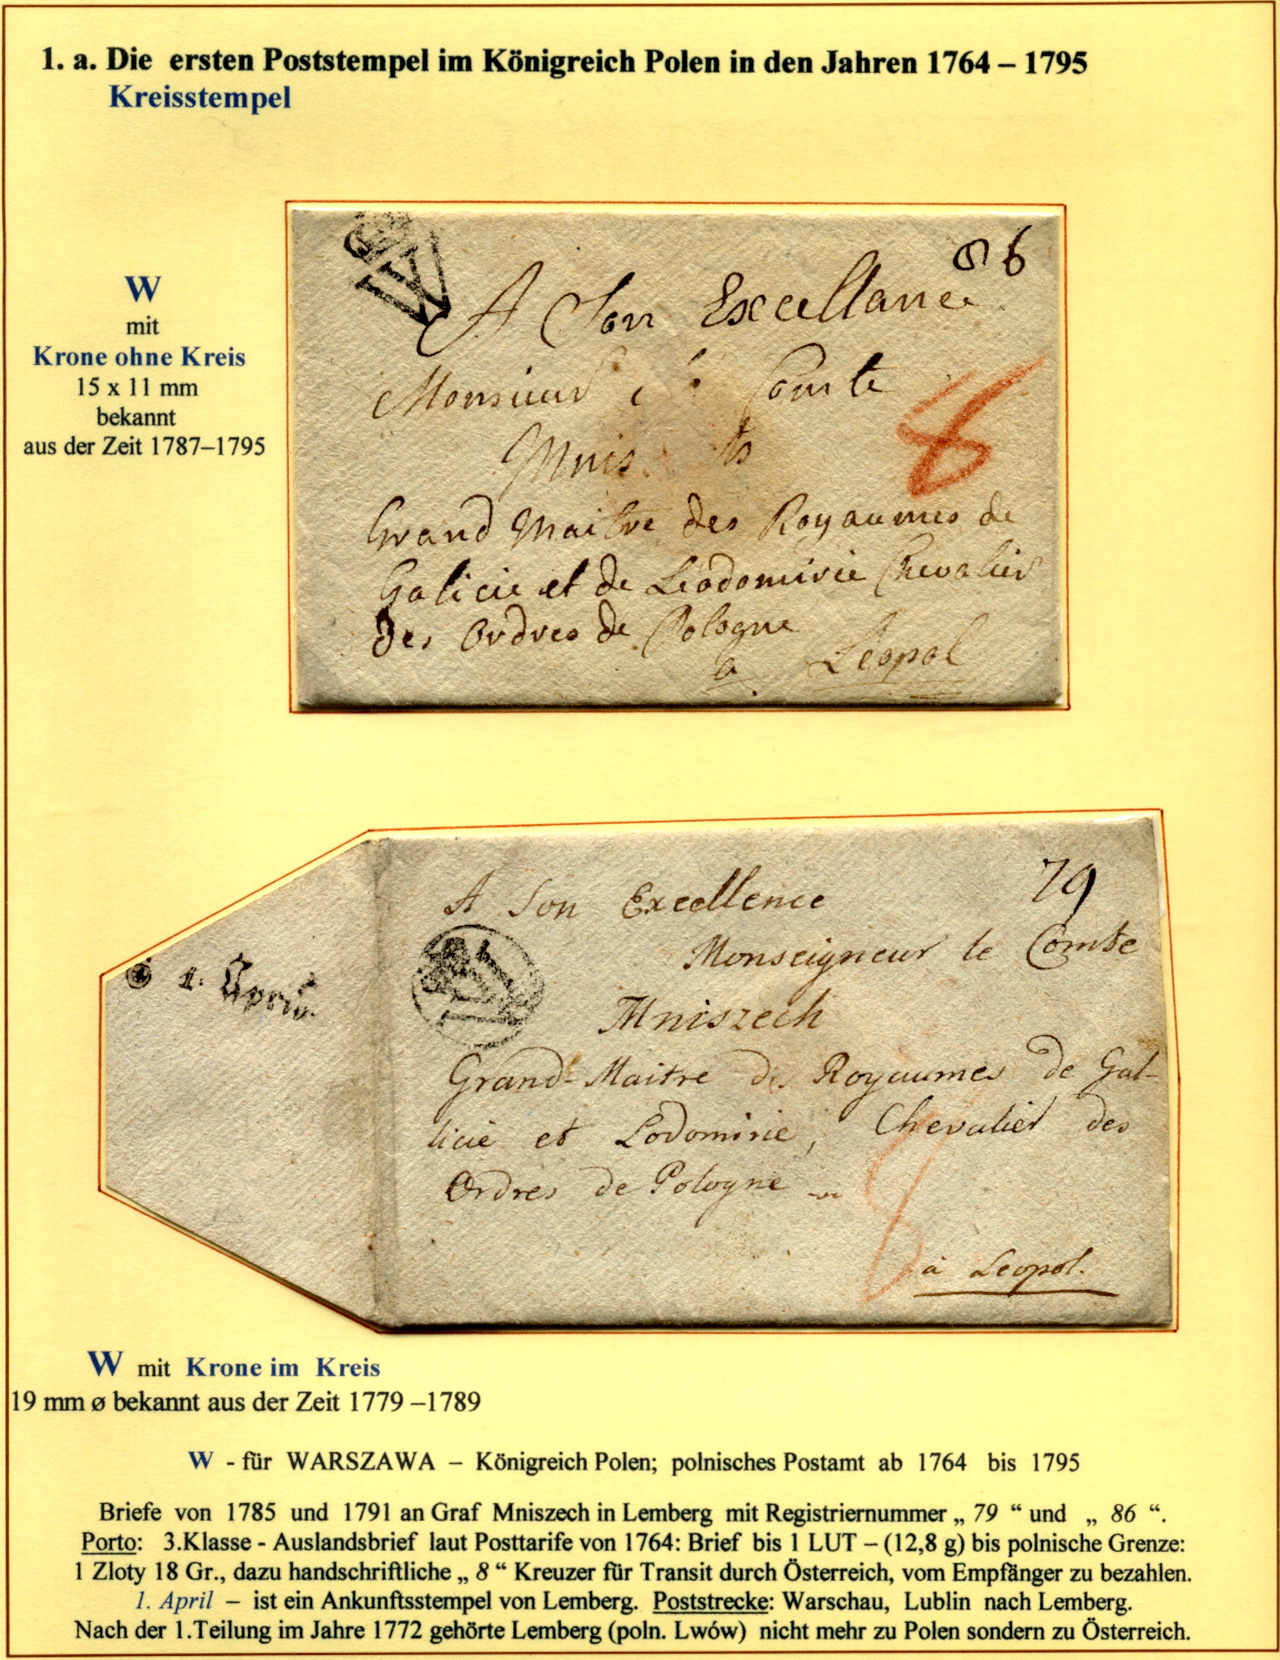 1. a. Die ersten Poststempel im Königreich Polen in den Jahren 1764 – 1795
Kreisstempel
W
mit
Krone ohne Kreis
15 x 11 mm
bekannt
aus der Zeit 1787–1795
W
86
A Son Excellance
Monsieur Comte
8
Grand Maitre des Royaumes de
Galicie et de Leodomirie Chevalier
des Ordres de Pologne
a Léopol
79
A Son Excellence
Monseigneur le Comte
W
1. April
Mniszech
Grand-Maitre des Royaumes de Gal-
licie et Lodomirie, Chevalier des
Ordres de Pologne
8
à Leopol.
W mit Krone im Kreis
19 mm ø bekannt aus der Zeit 1779 –1789
W - für WARSZAWA – Königreich Polen; polnisches Postamt ab 1764 bis 1795
Briefe von 1785 und 1791 an Graf Mniszech in Lemberg mit Registriernummer „ 79 “ und „ 86 “.
Porto: 3.Klasse - Auslandsbrief laut Posttarife von 1764: Brief bis 1 LUT – (12,8 g) bis polnische Grenze:
1 Zloty 18 Gr., dazu handschriftliche „ 8 “ Kreuzer für Transit durch Österreich, vom Empfänger zu bezahlen.
1. April – ist ein Ankunftsstempel von Lemberg. Poststrecke: Warschau, Lublin nach Lemberg.
Nach der 1.Teilung im Jahre 1772 gehörte Lemberg (poln. Lwów) nicht mehr zu Polen sondern zu Österreich.